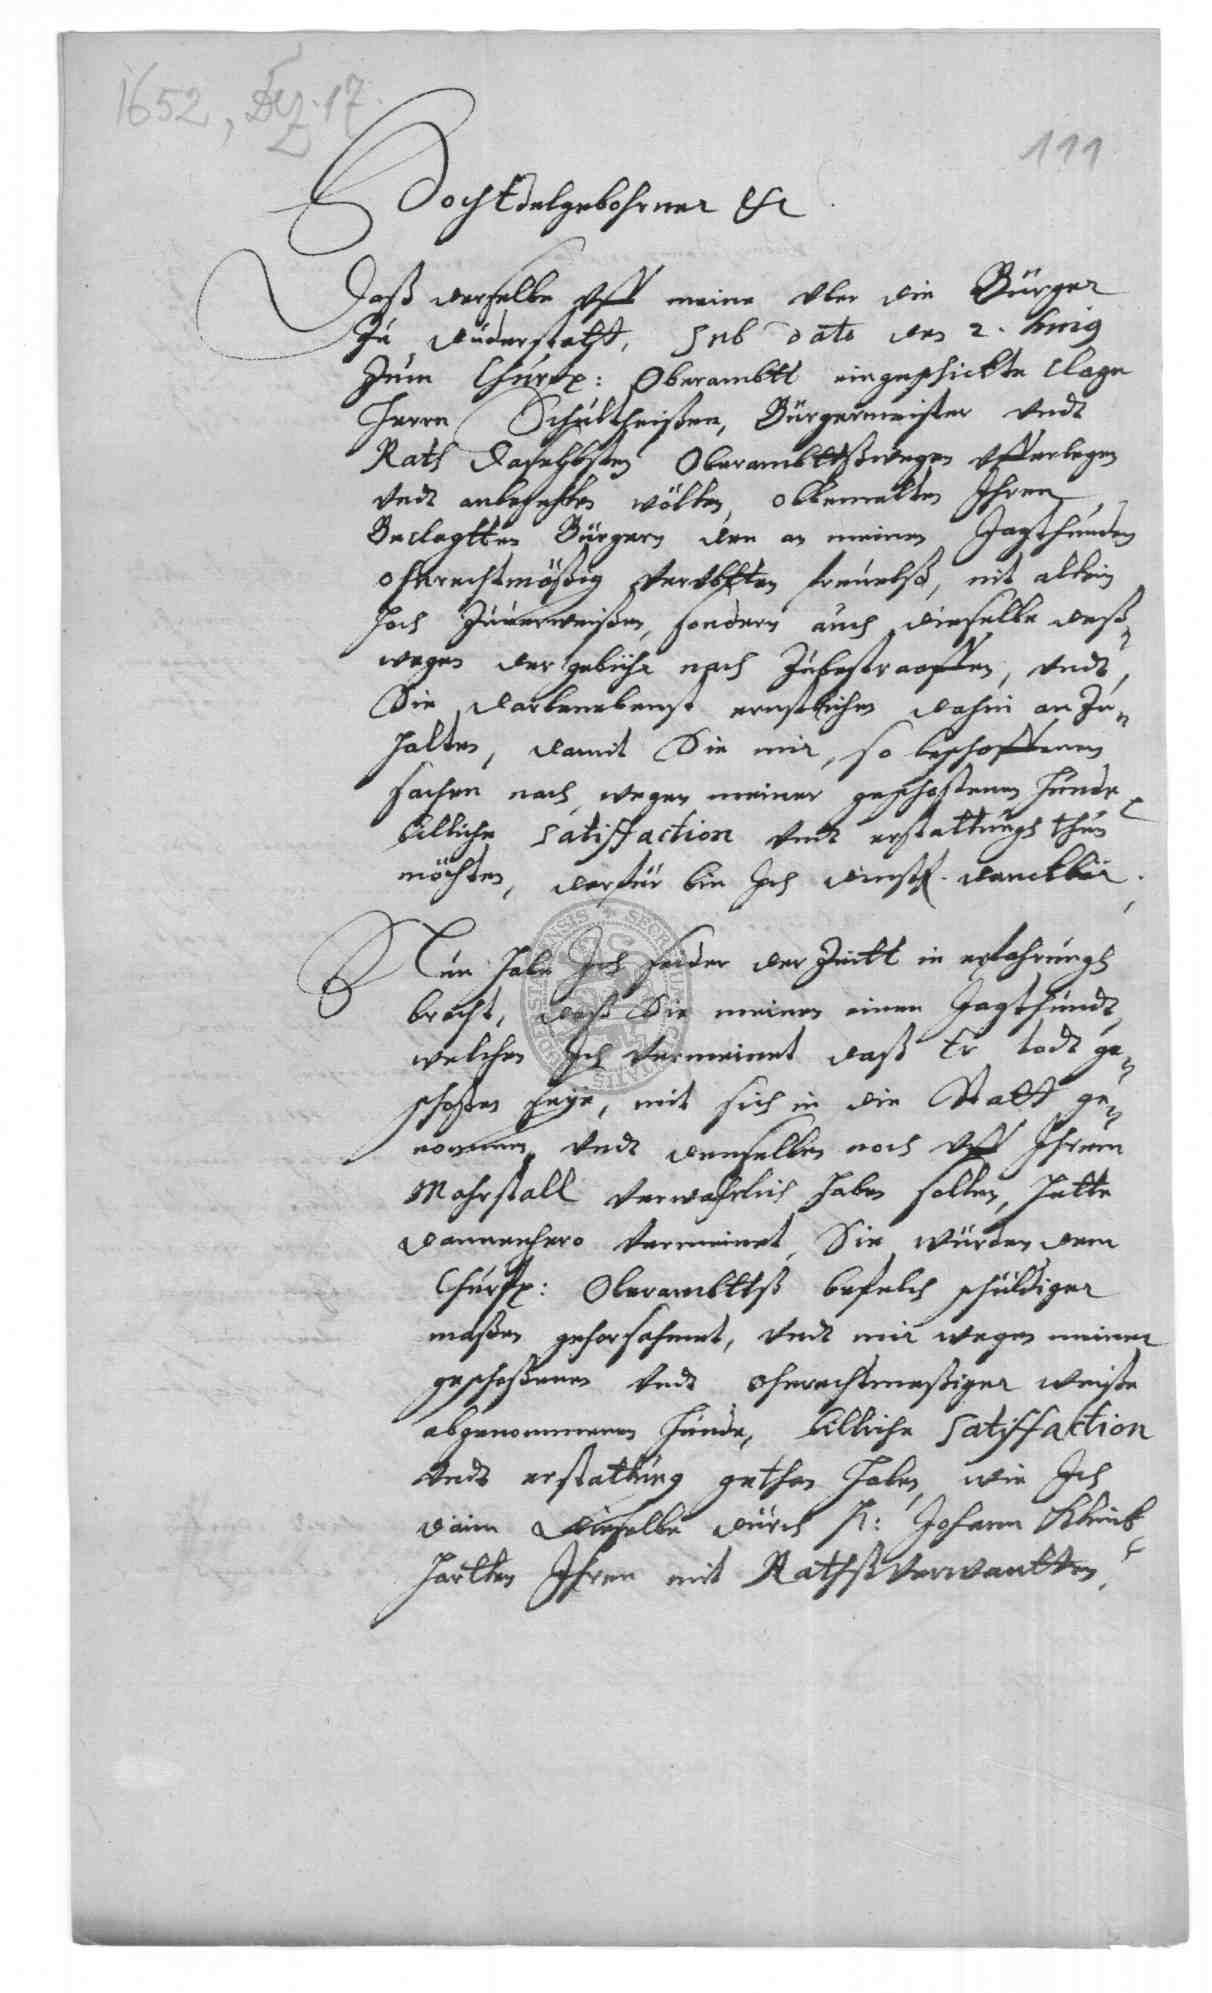 1652, Dez. 17.
111
HochEdelgebohrner &c
Daß derselbe vff meine vber die Bürger
Zu Duderstatt, sub dato den 2. huius
Zum Churfr: Oberambtt eingeschickte Clage
Herrn Schultheißen, Bürgermeister vndt
Rath daselbsten Oberambttßwegen vfferlegen
vndt anbefehlen wöllen, obbemelten Ihren
Beclagtten Bürgern den an meinen Jagthunden
ohnrechtmößig verübtten freuelß, nit allein
hoch Zuuerweißen, sondern auch dieselbe deß-
wegen der gebühr nach Zubestraaffen, vndt
Sie darbenebenst ernstlichen dahin an Zu-
halten, damit Sie mir, so beschaffenen
sachen nach, wegen meiner geschoßenen Hunde
billiche Satisfaction vndt erstattungh thun
möchten, darfür bin Ich dienstl. danckbar.
Nun habe Ich seider der Zeitt in erfahrungh
bracht, daß Sie meinen einen Jagthundt,
welchen Ich vermeinet daß Er todt ge-
schoßen seye, mit sich in die Statt ge-
nommen, vndt denselben noch vff Ihrem
Mahrstall verwahrlich haben sollen, hette
dannenhero vermeinet, Sie würden dem
Churfr: Oberambttß befelch schuldiger
maßen gehorsahmet, vndt mir wegen meiner
geschoßenen vndt ohnrechtmeßiger weiße
abgenommenen Hunde, billiche Satisfaction
vndt erstattung gethan haben, wie Ich
dan dieselbe durch H: Johann
hartten Ihren mit Rathßverwantten,